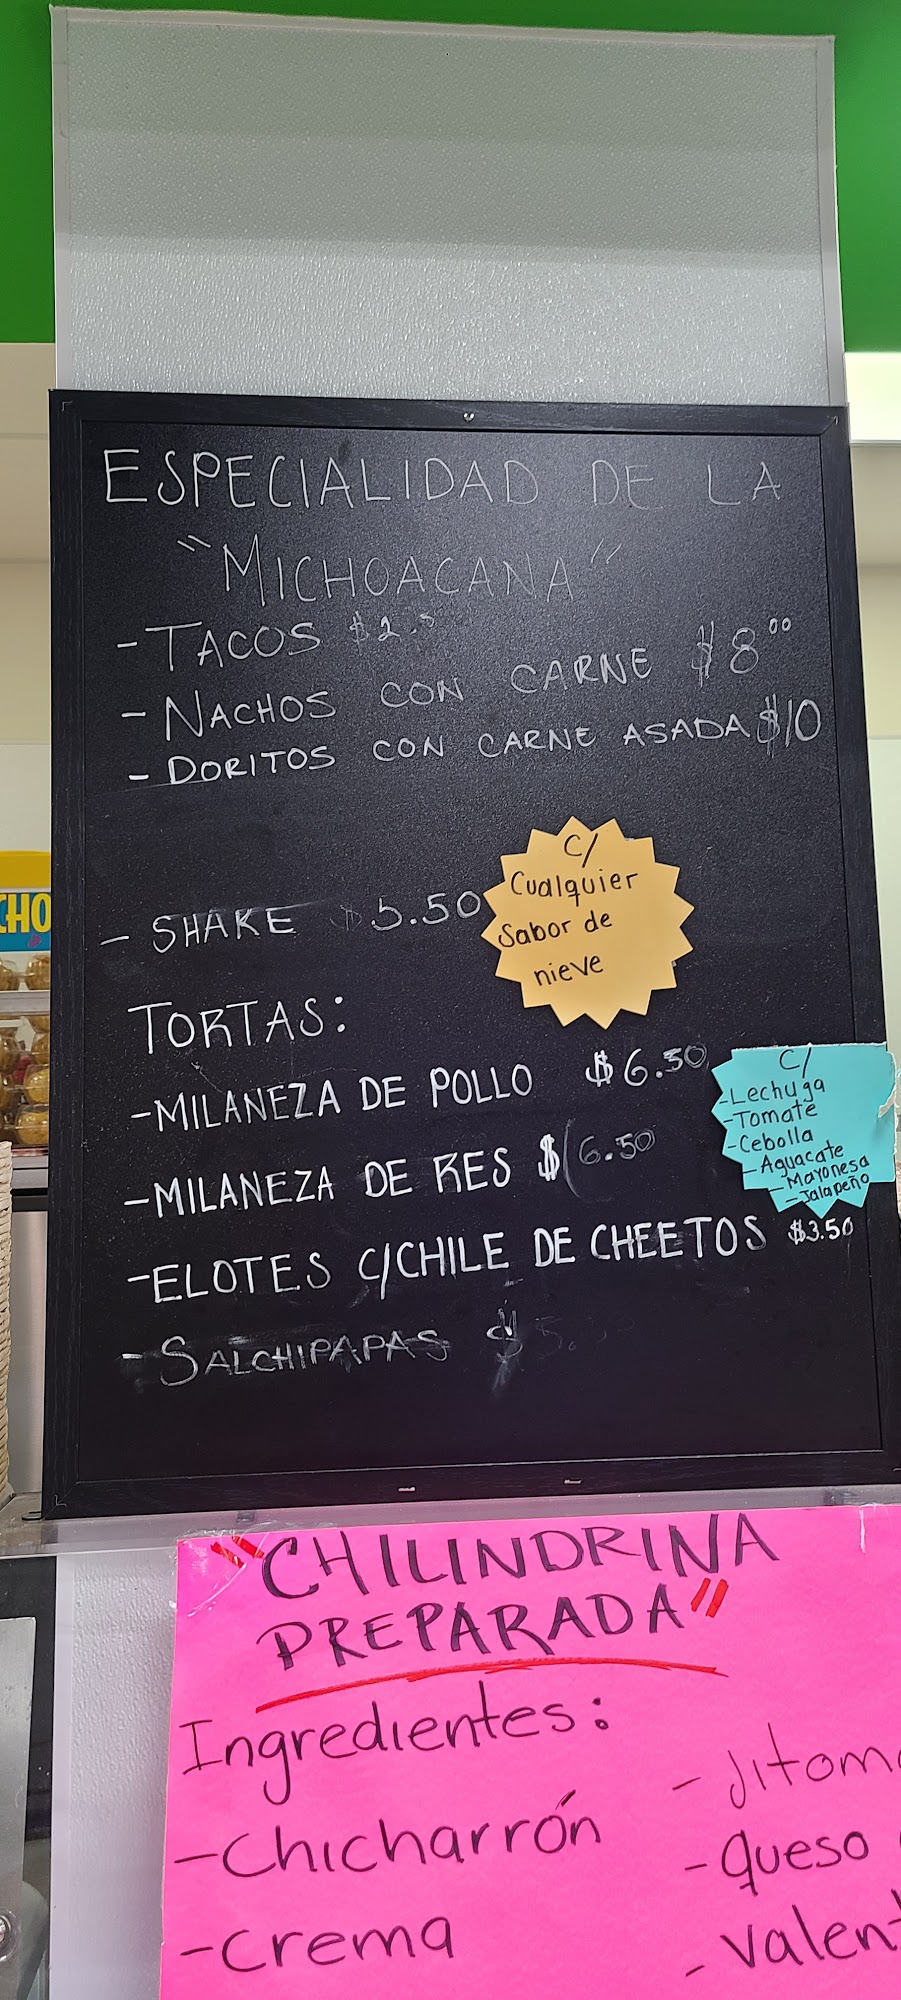 ESPECIALIDAD DE LA
"MICHOACANA"
- TACOS $2.
- NACHOS CON CARNE $8⁰⁰
- DORITOS CON CARNE ASADA $10
- SHAKE $5.50
C/
Cualquier
Sabor de
nieve
TORTAS:
-MILANEZA DE POLLO $6.50
-MILANEZA DE RES $6.50
C/
-Lechuga
-Tomate
-Cebolla
-Aguacate
-Mayonesa
-Jalapeño
-ELOTES C/CHILE DE CHEETOS $3.50
-SALCHIPAPAS $5.
CHO
"CHILINDRINA
PREPARADA"
Ingredientes:
-Chicharrón
-Crema
-Jitom
-Queso
-Valent